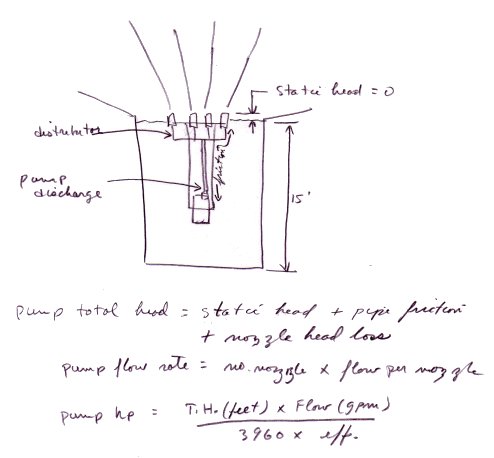 static head = 0
distributor
friction
pump
discharge
15'
pump total head = static head + pipe friction
+ nozzle head loss
pump flow rate = no. nozzle x flow per nozzle
pump hp = T.H. (feet) x Flow (gpm)
3960 x eff.